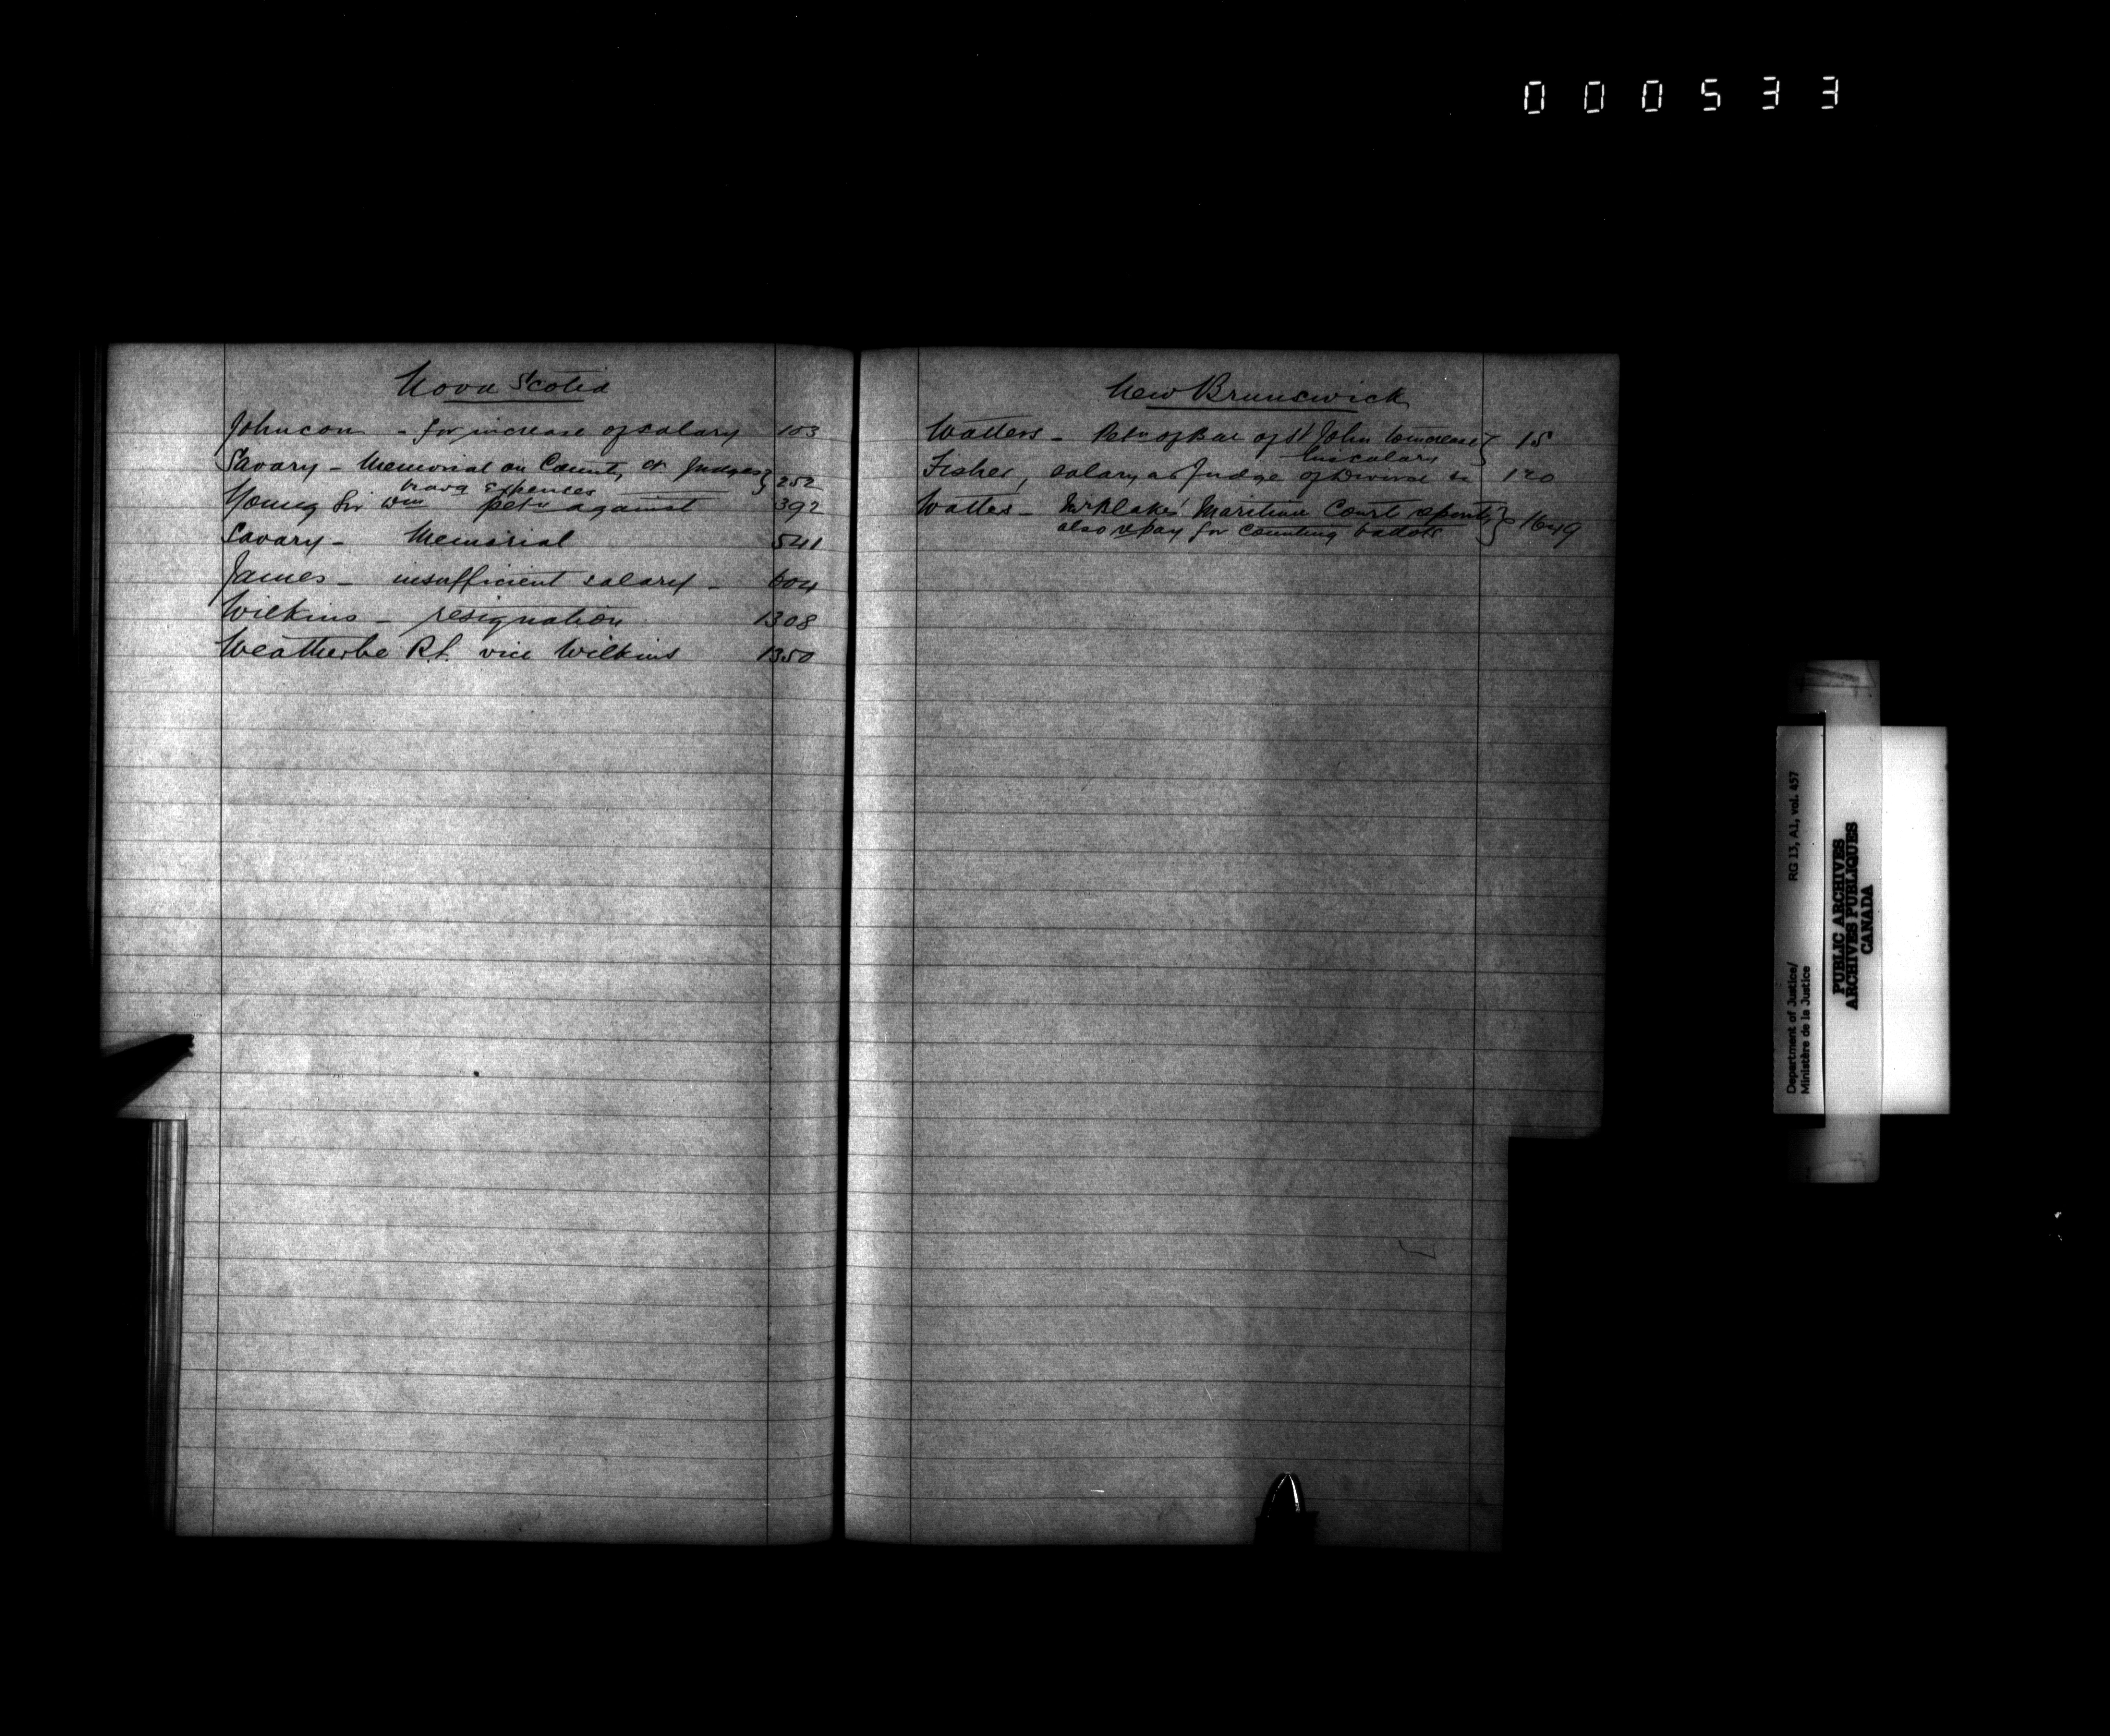 000533
Nova Scotia
Johnson - for increase of salary 103
Savary - Memorial on County Ct Judges } 252
travg expenses
Young Sir Wm petn against 392
Savary - Memorial 541
James - insufficient salary - 604
Wilkins - resignation 1308
Weatherbe R.L. vice Wilkins 1350
New Brunswick
Watters - Petn of Bar of St John to increase } 15
his salary
Fisher, salary as Judge of Divorce 120
Watters - Mr Blake's Maritime Court } 1649
also pay for counting ballots
Department of Justice/ RG 13, A1, vol. 457
Ministère de la Justice
PUBLIC ARCHIVES
ARCHIVES PUBLIQUES
CANADA